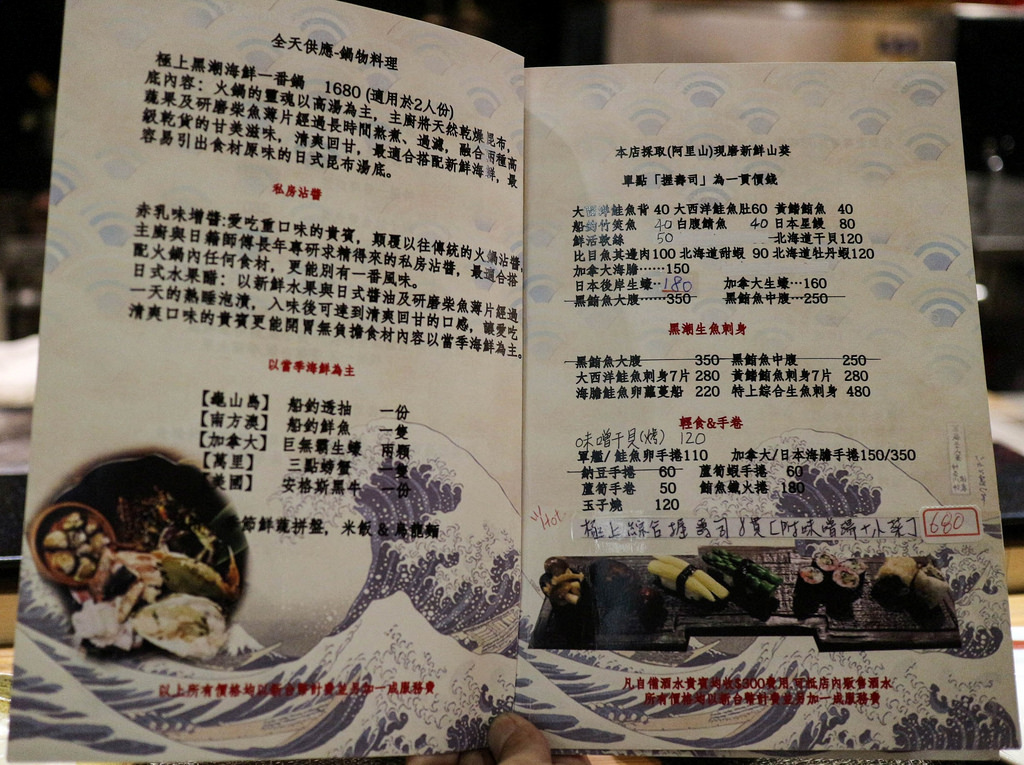 全天供應-鍋物料理
極上黑潮海鮮一番鍋 1680 (適用於2人份)
底內容: 火鍋的靈魂以高湯為主, 主廚將天然乾燥昆布,
蔬果及研磨柴魚薄片經過長時間熬煮、過濾, 融合兩種高
級乾貨的甘美滋味, 清爽回甘, 最適合搭配新鮮海鮮, 最
容易引出食材原味的日式昆布湯底。
私房沾醬
赤乳味增醬:愛吃重口味的貴賓, 顛覆以往傳統的火鍋沾醬,
主廚與日籍師傅長年專研求精得來的私房沾醬, 最適合搭
配火鍋內任何食材, 更能別有一番風味。
日式水果醋: 以新鮮水果與日式醬油及研磨柴魚薄片經過
一天的熟睡泡漬, 入味後可達到清爽回甘的口感, 讓愛吃
清爽口味的貴賓更能開胃無負擔食材內容以當季海鮮為主。
以當季海鮮為主
【龜山島】 船釣透抽 一份
【南方澳】 船釣鮮魚 一隻
【加拿大】 巨無霸生蠔 兩顆
【萬里】 三點螃蟹 一隻
【美國】 安格斯黑牛 一份
季節鮮蔬拼盤, 米飯 & 烏龍麵
以上所有價格均以新台幣計費並另加一成服務費
本店採取(阿里山)現磨新鮮山葵
單點「握壽司」為一貫價錢
大西洋鮭魚背 40 大西洋鮭魚肚60 黃鰭鮪魚 40
船釣竹筴魚 40 白腹鮪魚 40 日本星鰻 80
鮮活軟絲 50 北海道干貝120
比目魚其邊肉100 北海道甜蝦 90 北海道牡丹蝦120
加拿大海膽……150
日本後岸生蠔…180 加拿大生蠔…160
黑鮪魚大腹……350 黑鮪魚中腹…250
黑潮生魚刺身
黑鮪魚大腹 350 黑鮪魚中腹 250
大西洋鮭魚刺身7片 280 黃鰭鮪魚刺身7片 280
海膽鮭魚卵蘿蔓船 220 特上綜合生魚刺身 480
輕食&手卷
味噌干貝(烤) 120
軍艦/鮭魚卵手捲110 加拿大/日本海膽手捲150/350
納豆手捲 60 蘆筍蝦手捲 60
蘆筍手卷 50 鮪魚鐵火捲 180
玉子燒 120
Hot
極上綜合握壽司8貫[附味噌湯+小菜] 680
凡自備酒水貴賓均收$300費用,可抵店內販售酒水
所有價格均以新台幣計費並另加一成服務費